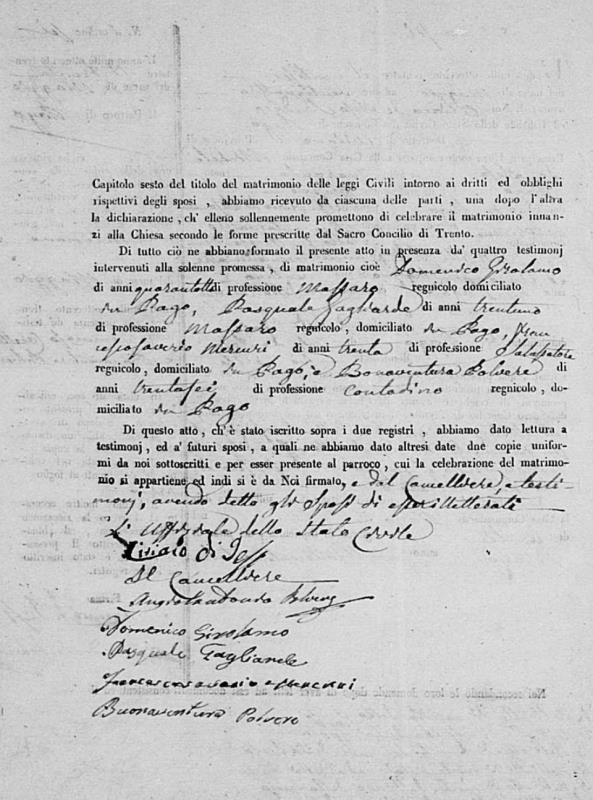 Capitolo sesto del titolo del matrimonio delle leggi Civili intorno ai dritti ed obblighi
rispettivi degli sposi , abbiamo ricevuto da ciascuna delle parti , una dopo l'altra
la dichiarazione, ch' elleno sollennemente promettono di celebrare il matrimonio innan-
zi alla Chiesa secondo le forme prescritte dal Sacro Concilio di Trento.
Di tutto ciò ne abbiano formato il presente atto in presenza da' quattro testimonj
intervenuti alla solenne promessa , di matrimonio cioè Domenico Girolamo
di anni quarantotto di professione Massaro regnicolo domiciliato
in Pago, Pasquale Gagliarde di anni trentuno
di professione Massaro regnicolo, domiciliato in Pago, Fran
cescosaverio Mercuri di anni trenta di professione
regnicolo, domiciliato in Pago, e Bonaventura Polvere di
anni trentasei di professione contadino regnicolo, do-
miciliato in Pago
Di questo atto, ch'è stato iscritto sopra i due registri , abbiamo dato lettura a
testimonj, ed a' futuri sposi, a quali ne abbiamo dato altresì date dne copie unifor-
mi da noi sottoscritti e per esser presente al parroco, cui la celebrazione del matrimo-
nio si appartiene ed indi si è da Noi firmato, e dal Cancelliere, e testi-
monj, avendo detto gli Sposi di essere illetterati
L'Uffiziale dello Stato Civile
di
Il Cancelliere
Domenico Girolamo
Pasquale Gagliarde
Francescosaverio Mercuri
Buonaventura Polvere